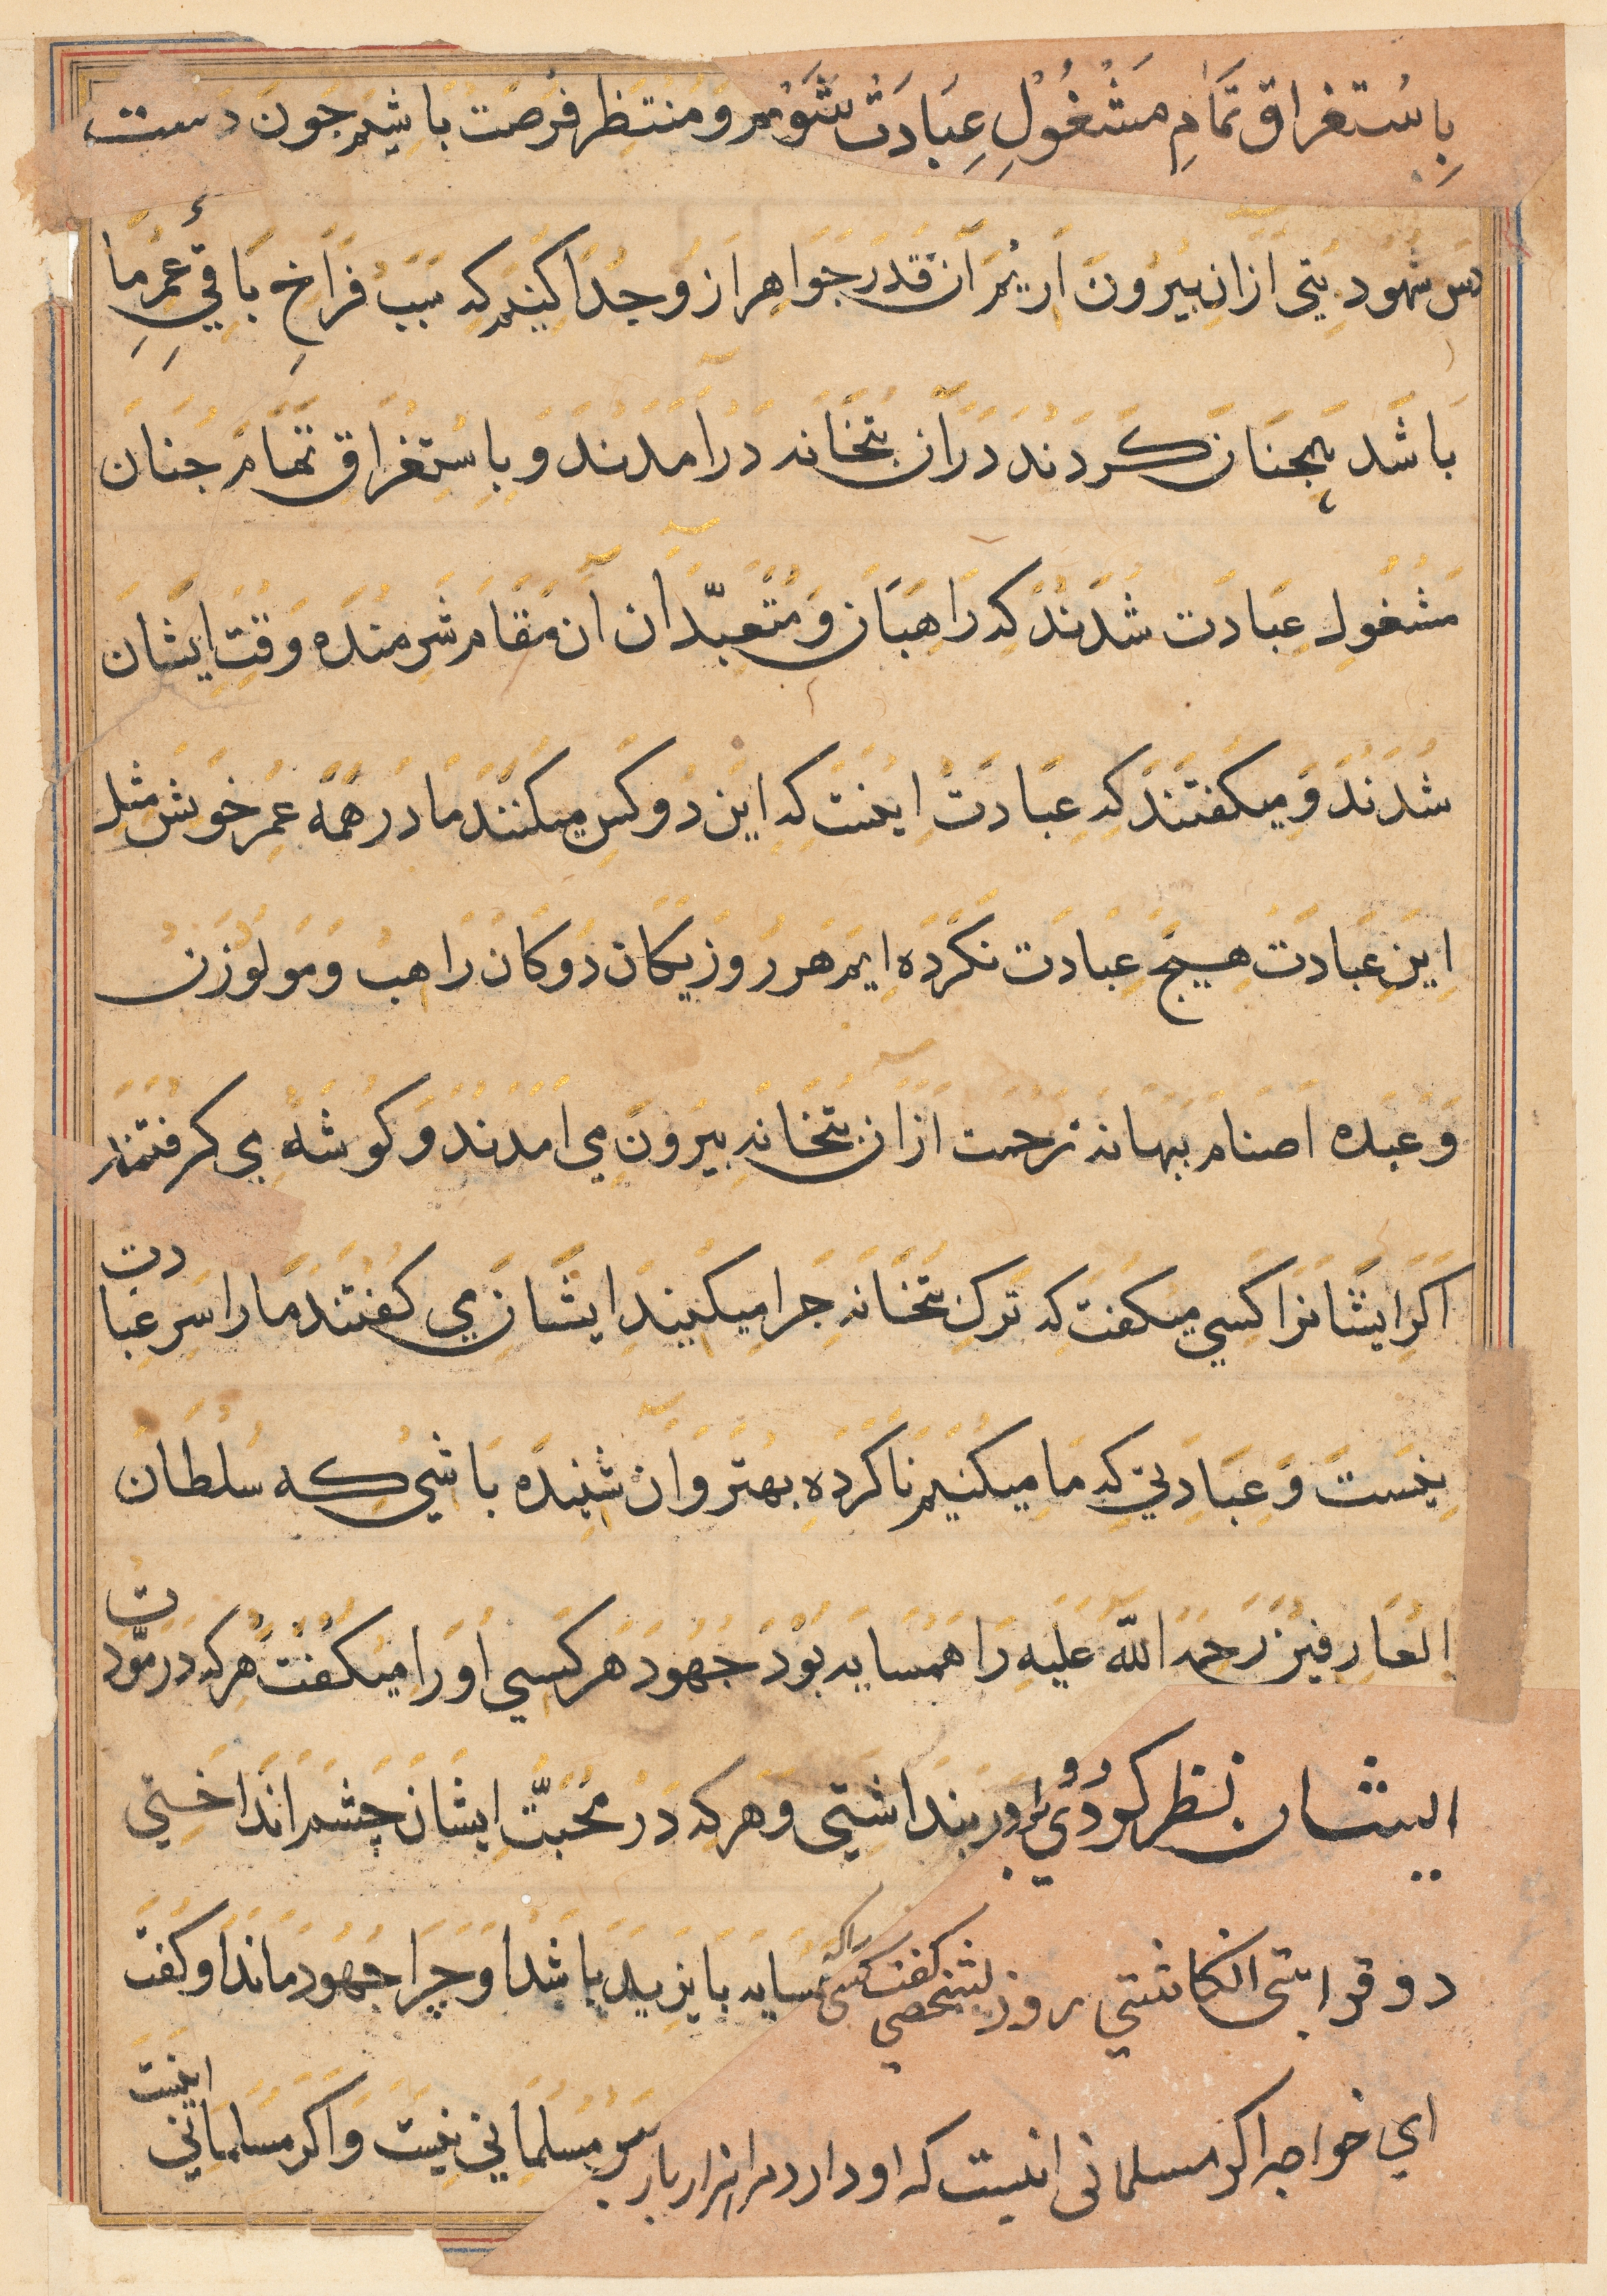 بِاسْتغراق تمَامِ مَشْغُولِ عِبَادَتْ شَوْیم وَ مُنتظر فُرصَت بَاشِیم جُون دَست
دس شهُود بُتی ازان بیرُون اریم آن قدر جَوَاهِر از وَ جُدا کنیم که سَبَبِ فَرَاخِ بَاقیِ عُمرِ مَا
بَاشَد همجنان کَردَند دَران بتخانه دَرامَدَند وَ بِاسْتِغراق تمام جُنان
مَشغولِ عِبادَت شُدَند که رَاهبَان وَ مُتعبّدان آن مقام شرمنده وَقتِ ایشان
شُدَند وَ میکفتند که عِبَادَت اینست که این دو کس میکنند ما در همه عمر خویش مثل
این عبادَت هیچ عِبادَت نکرده ایم هر روز یکان دوکان راهب وَ مولوزن
وَ عبده اصنام ببهانه زحمت ازان بتخانه بیرون می امدند وَ کوشه ی کرفتند
اکر ایشانرا کسی میکفت که ترک بتخانه جرا میکنید ایشان می کفتند ما را سر عبادت
نیست وَ عبادتی که ما میکنیم ناکرده بهتر وان شنیده باشی که سُلطان
العارفین رحمة الله علیه را همسایه بود جُهود هر کسی او را میکفت هر که در مودت
ایشان نظر کردی بر در بنداشتی و هر که در محبّت ایشان چشم انداختی
دو قرابتی انکاشتی روزی شخصی کفت کسی راکه همسایه بایزید باشد او چرا جُهود ماند او کفت
ای خواجه اکر مسلمانی اینست که او دارد مرا ازار بار سر مسلمانی نیست وَ اکر مسلمانی اینست